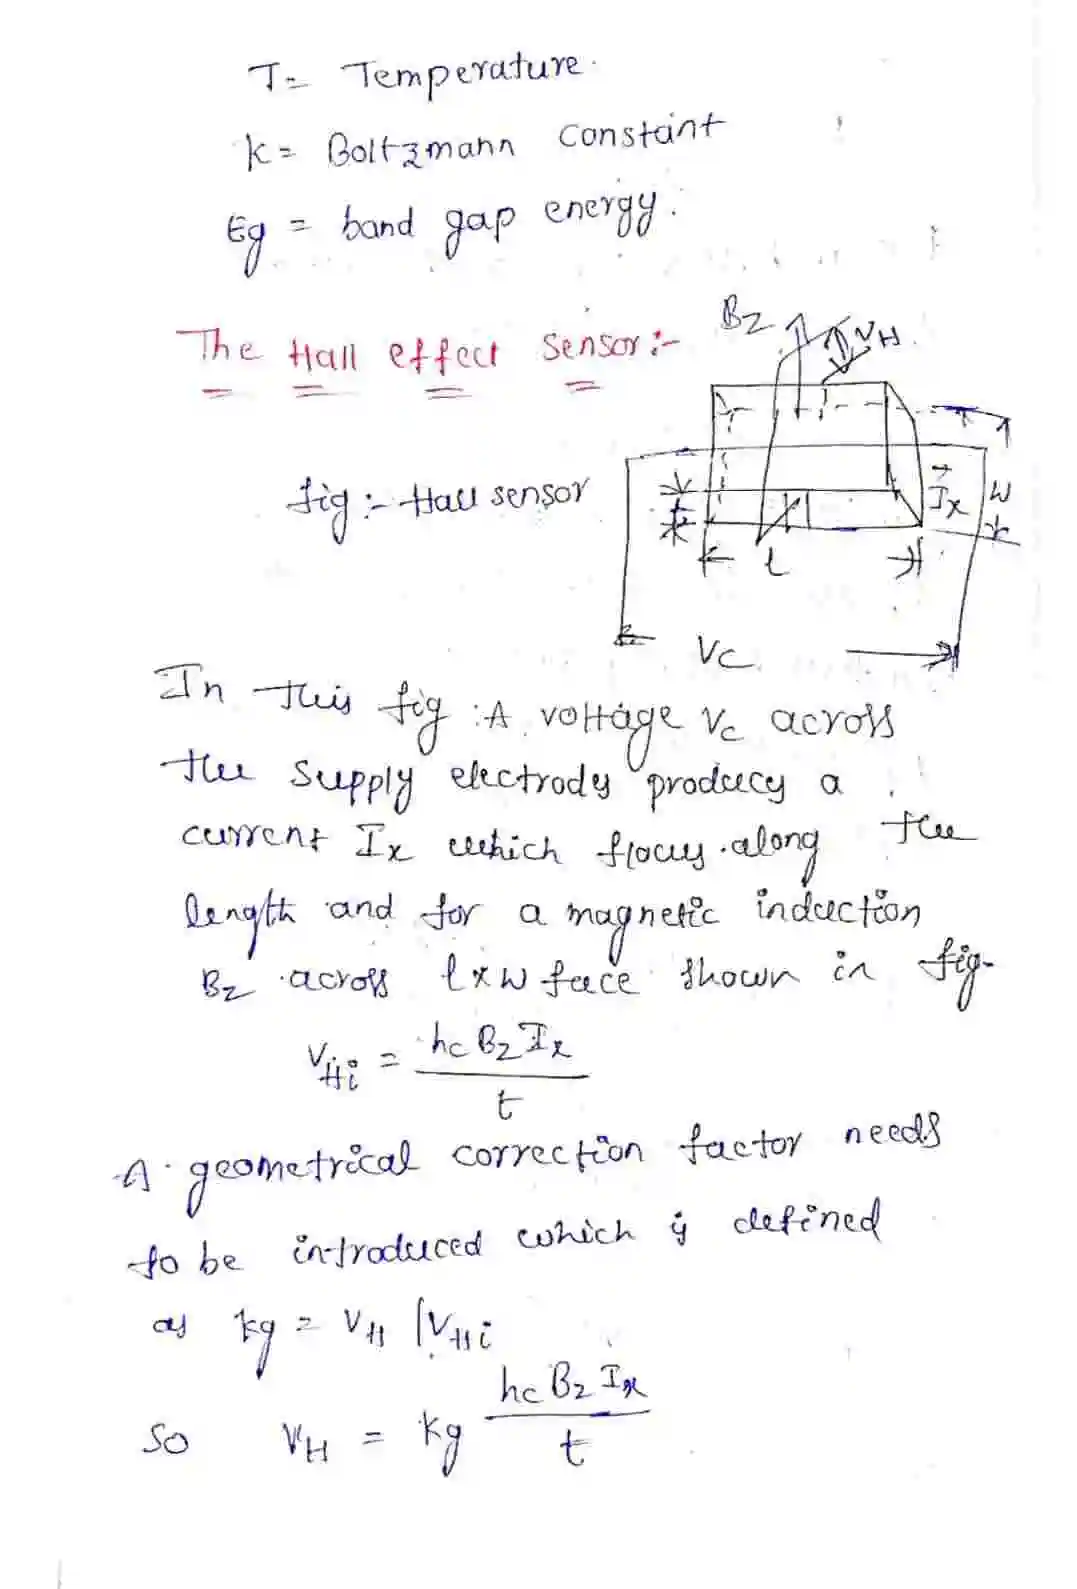 T= Temperature.
K = Boltzmann constant
Eg = band gap energy.
The Hall effect sensor :-
Bz VH
fig :- Hall sensor
Ix W
t
l
Vc
In this fig : A voltage Vc across
the supply electrodes produces a
current Ix which flows along the
length and for a magnetic induction
Bz across l x w face shown in fig-
VHi = hc Bz Ix / t
A geometrical correction factor needs
to be introduced which is defined
as kg = VH / VHi
So VH = kg hc Bz Ix / t